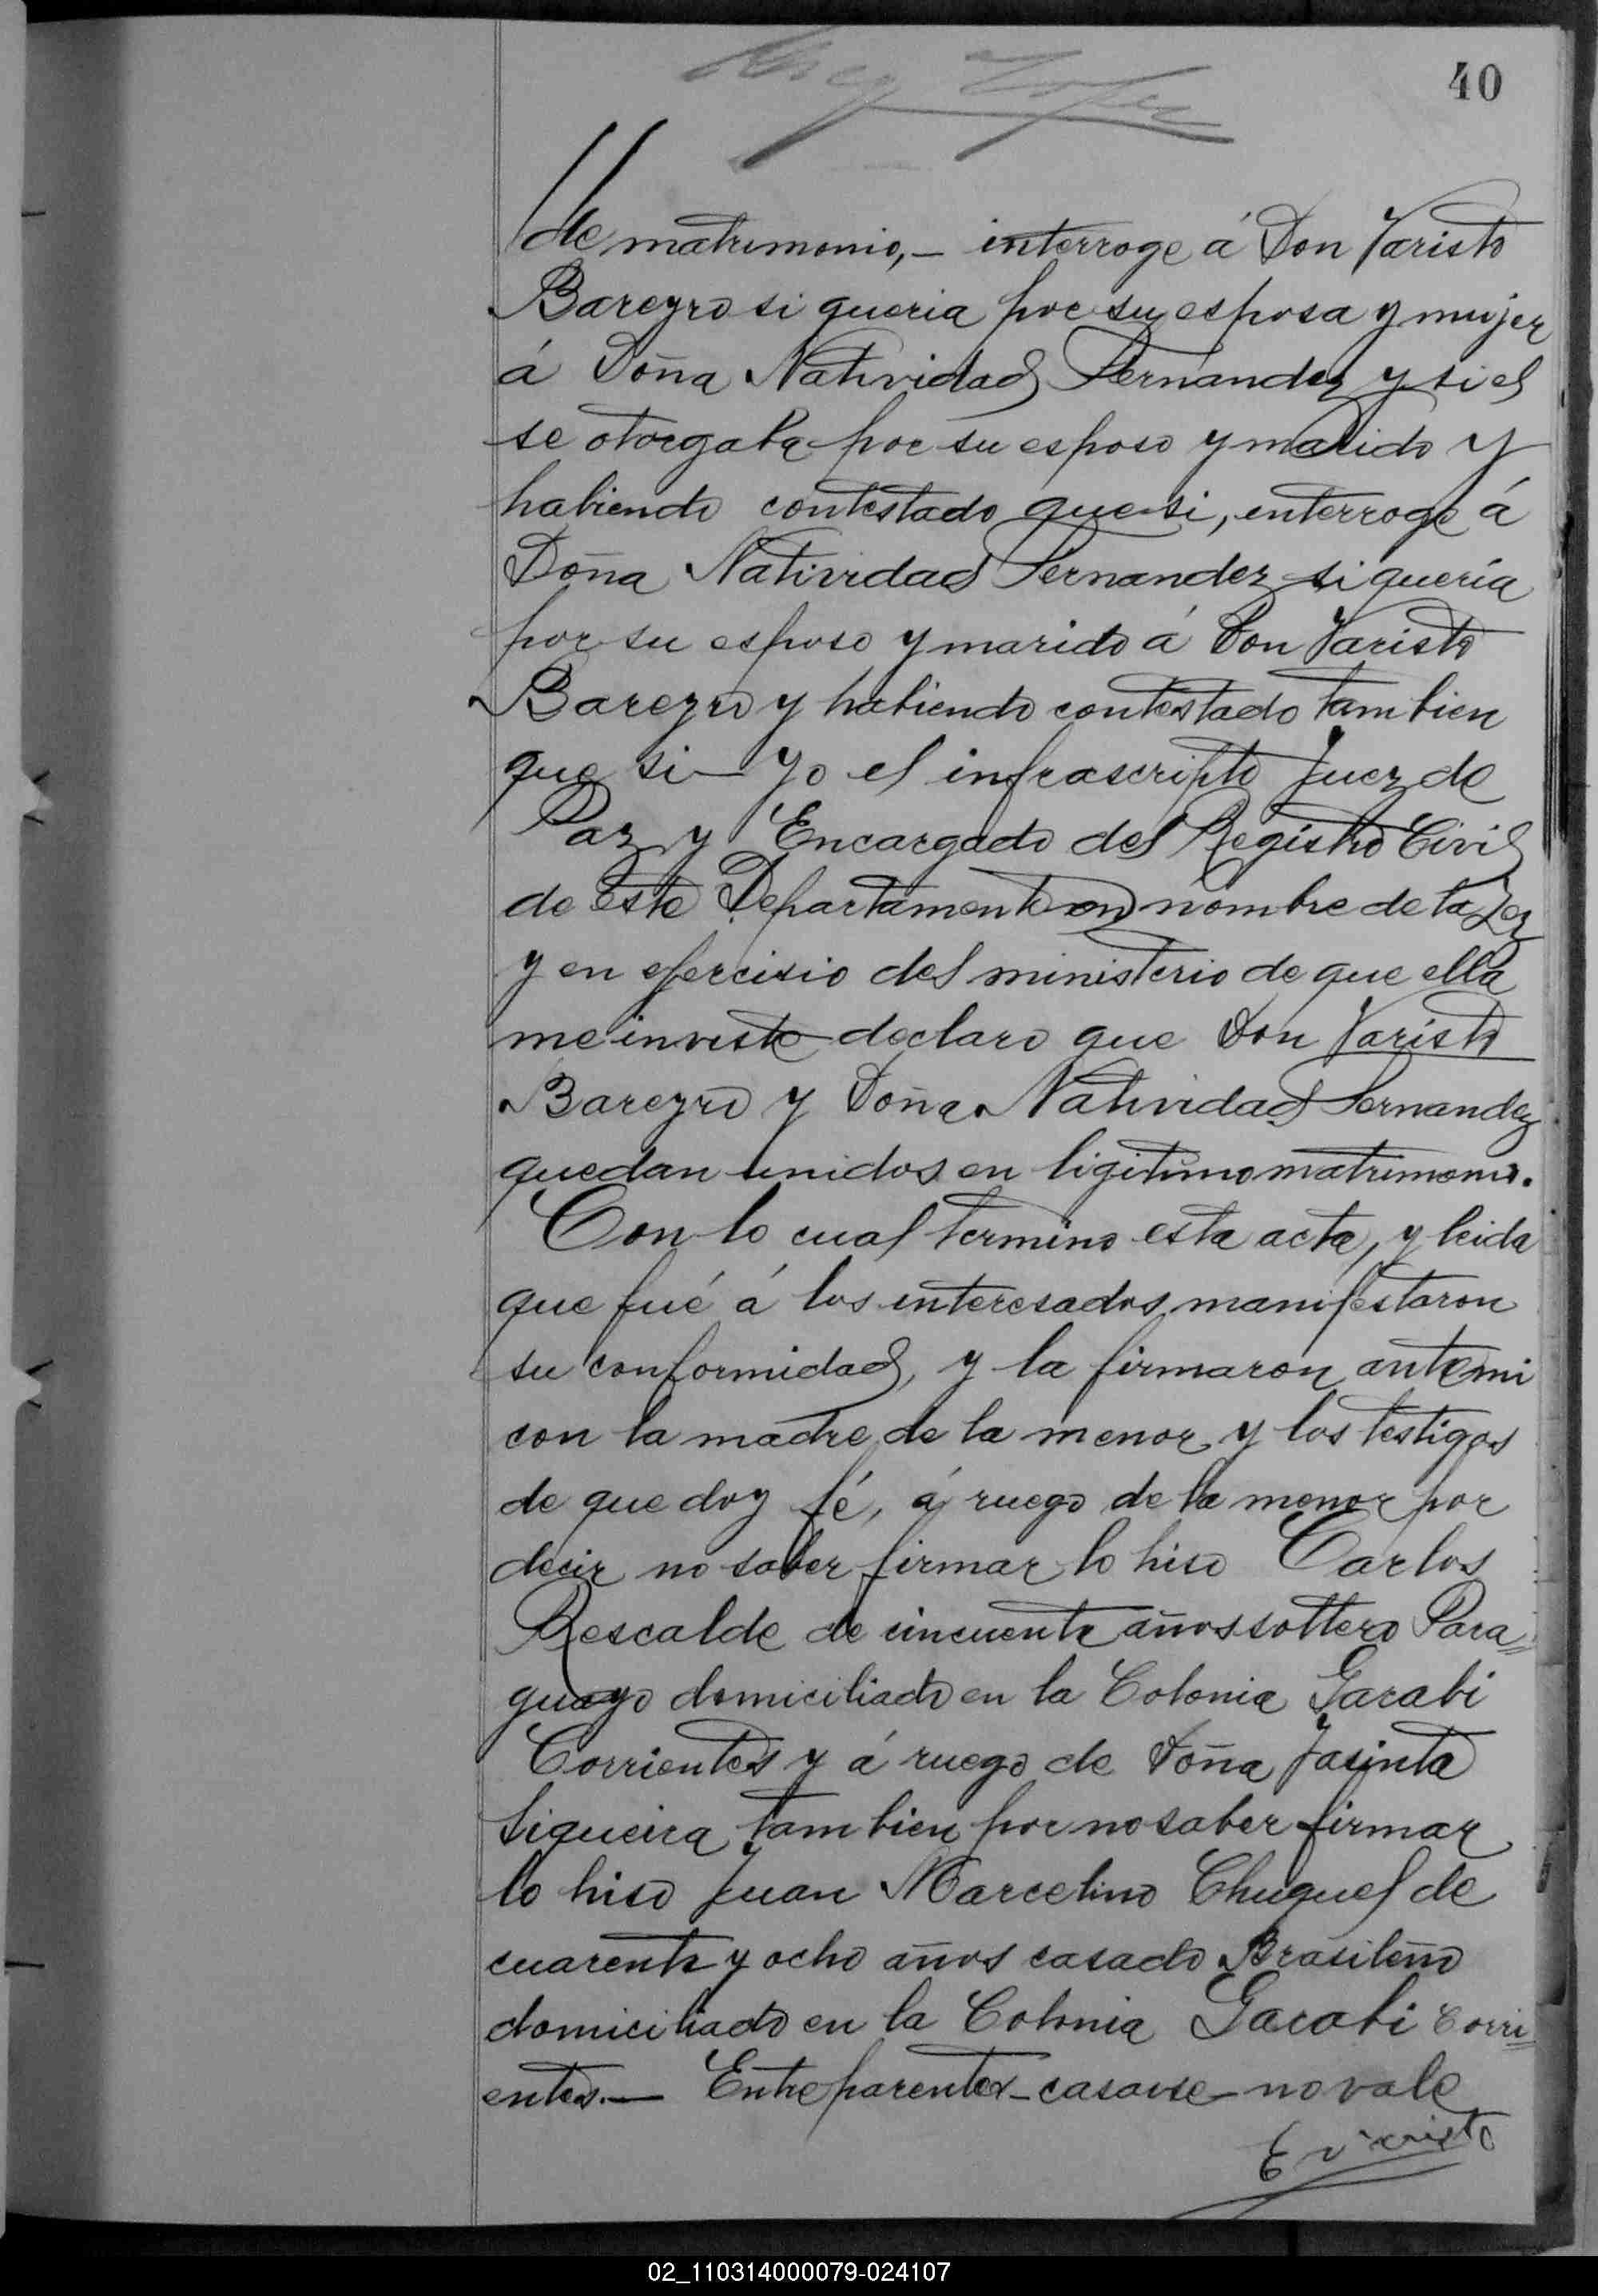 40
de matrimonio,- interroge á Don Varisto
Bareyro si queria por su esposa y mujer
á Doña Natividad Fernandez y si el
se otorgaba por su esposo y marido y
habiendo contestado que si, enterroge á
Doña Natividad Fernandez si quería
por su esposo y marido á Don Varisto
Bareyro y habiendo contestado tambien
que si - Yo el infrascripto Juez de
Paz y Encargado del Registro Civil
de este Departamento en nombre de la Ley
y en ejercisio del ministerio de que ella
me inviste declaro que Don Varisto
Bareyro y Doña Natividad Fernandez
quedan unidos en ligitimo matrimonio.
Con lo cual termino esta acta, y leida
que fué á los interesados manifestaron
su conformidad, y la firmaron ante mi
con la madre de la menor y los testigos
de que doy fé, á ruego de la menor por
decir no saber firmar lo hiso Carlos
Rescalde de cincuenta años soltero Para=
guayo domiciliado en la Colonia Garabi
Corrientes y á ruego de Doña Jasinta
Siqueira tambien por no saber firmar
lo hiso Juan Marcelino Chuquel de
cuarenta y ocho años casado Brasileño
domiciliado en la Colonia Garabi Corri=
entes.- Entre parentes - casarse - no vale
Evaristo
02_110314000079-024107